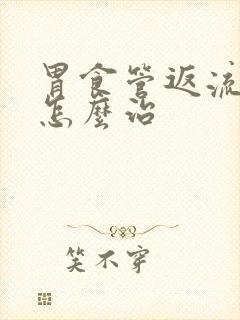 胃食管返流
怎麼治
笑不穿